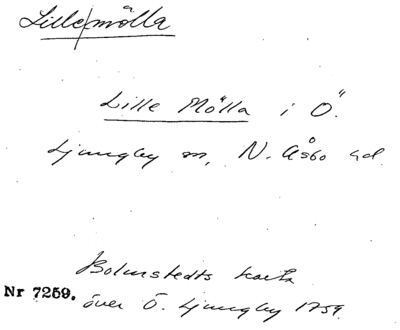 Lille/mölla
Lille Mölla i Ö.
Ljungby sn, N. Åsbo hd
Bolmstedts karta
Nr 7259. över Ö. Ljungby 1759.